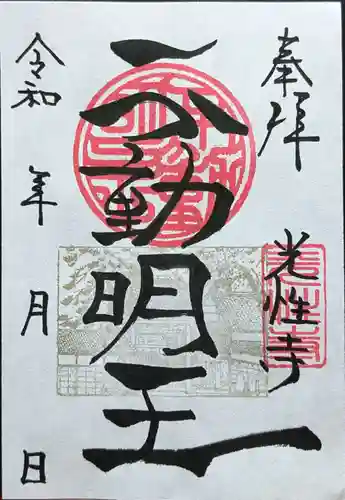 奉拝
光性寺
不動明王
令和 年 月 日